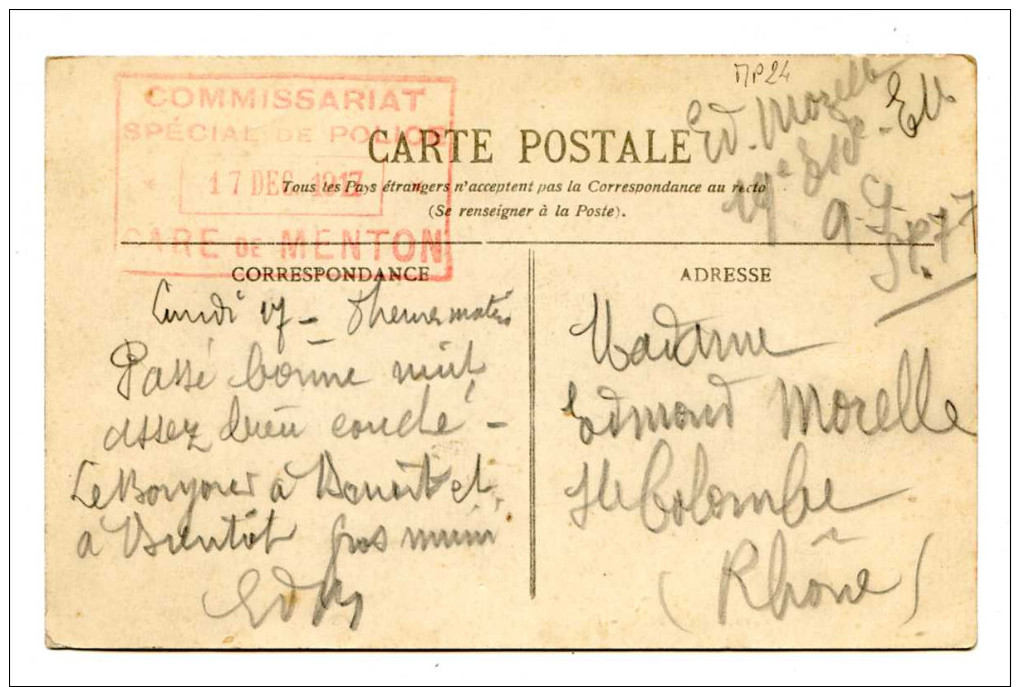 MP24
COMMISSARIAT
SPÉCIAL DE POLICE
17 DEC 1917
GARE DE MENTON
Ed. Morelle
19e
CARTE POSTALE
Tous les Pays étrangers n'acceptent pas la Correspondance au recto
(Se renseigner à la Poste).
CORRESPONDANCE
Lundi 17 - heures matin
Passé bonne nuit
assez bien couché -
Le Bonjour à Benoit et
à Bientôt gros mimi
EdM
ADRESSE
Madame
Edmond Morelle
Ste Colombe
(Rhône)